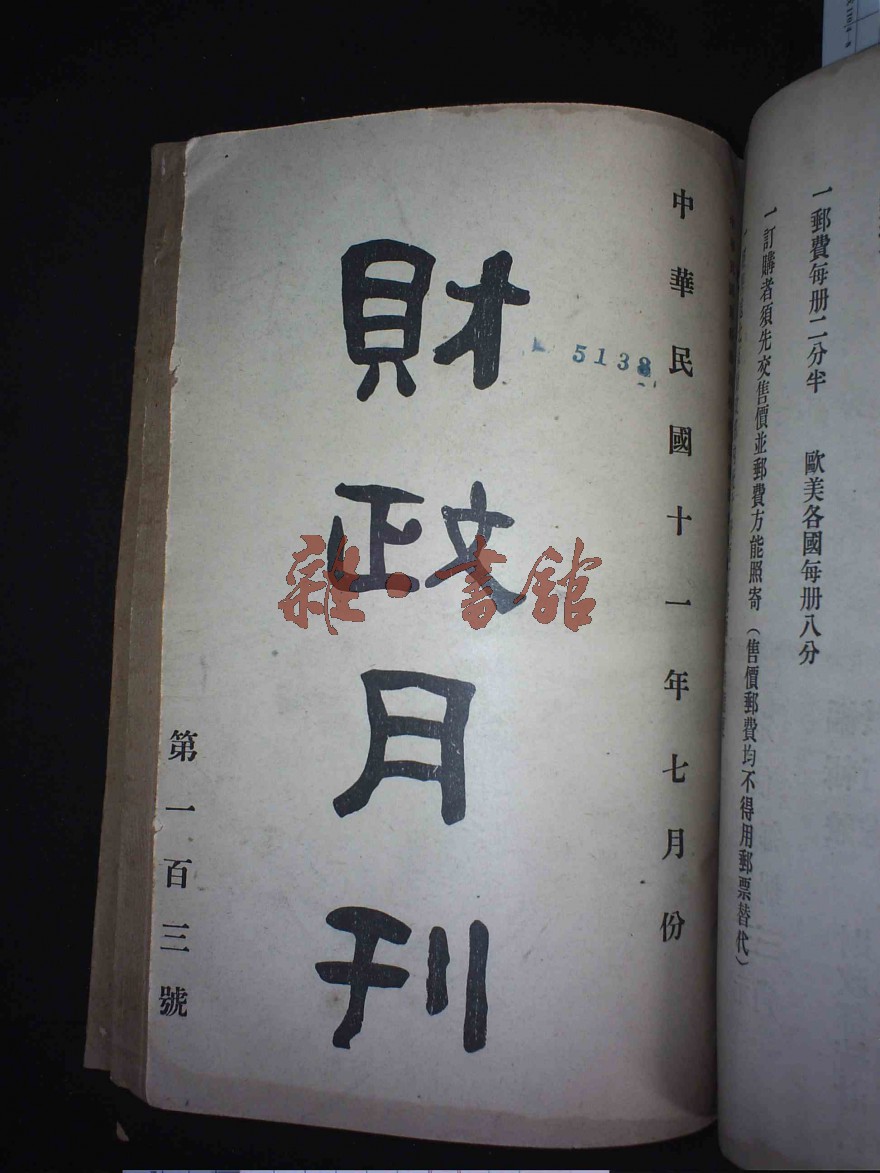 一郵費每册二分半　歐美各國每册八分
一訂購者須先交售價並郵費方能照寄（售價郵費均不得用郵票替代）
中華民國十一年七月份
5138
財政月刊
第一百三號
雜·書館